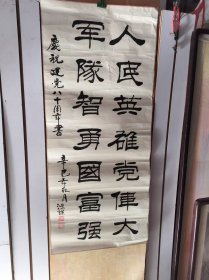 人民英雄党伟大
军隊智勇國富强
慶祝建党八十周年書
辛巳年